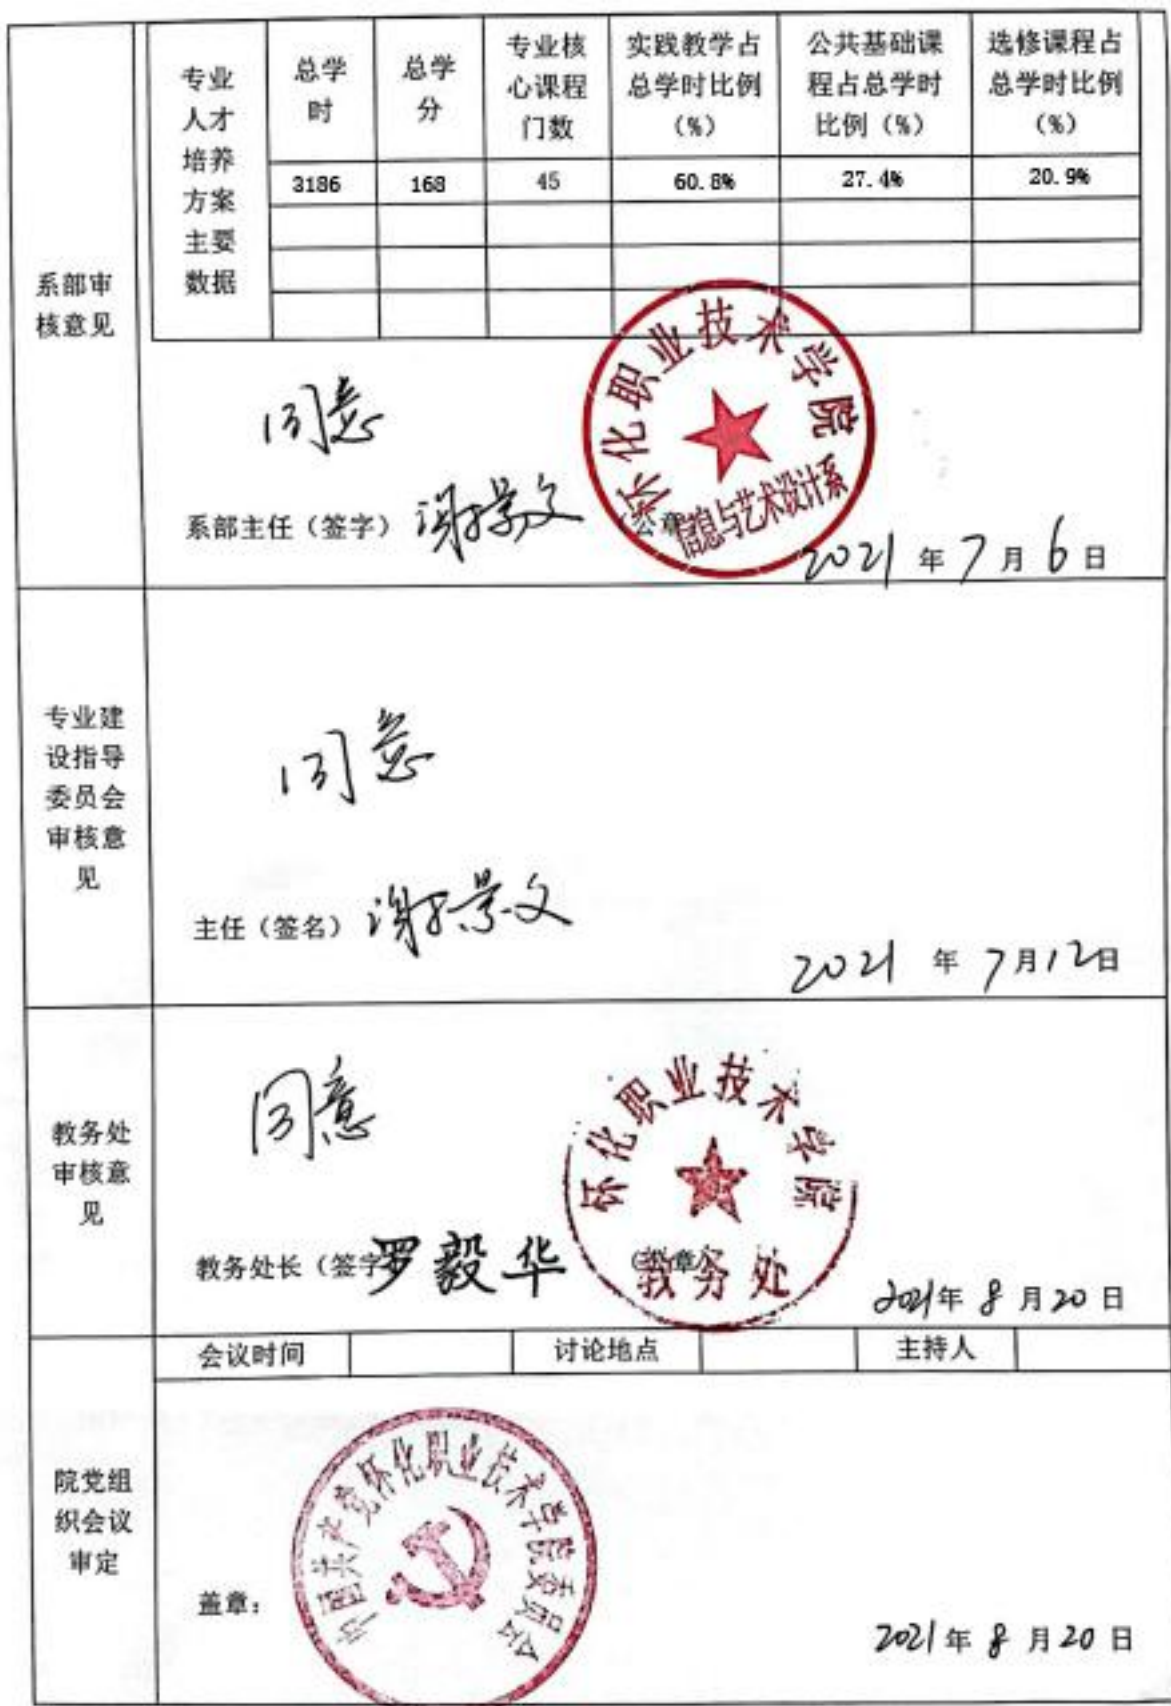 系部审
核意见
专业
人才
培养
方案
主要
数据
总学
时
总学
分
专业核
心课程
门数
实践教学占
总学时比例
(%)
公共基础课
程占总学时
比例(%)
选修课程占
总学时比例
(%)
3186 168 45 60.8% 27.4% 20.9%
同意
怀化职业技术学院
信息与艺术设计系
系部主任(签字) 谢景文 (公章
2021年7月6日
专业建
设指导
委员会
审核意
见
同意
主任(签名) 谢景文
2021年7月12日
教务处
审核意
见
同意
怀化职业技术学院
教务处
教务处长(签字 罗毅华 (公章)
2021年8月20日
会议时间 讨论地点 主持人
院党组
织会议
审定
中国共产党怀化职业技术学院委员会
盖章:
2021年8月20日